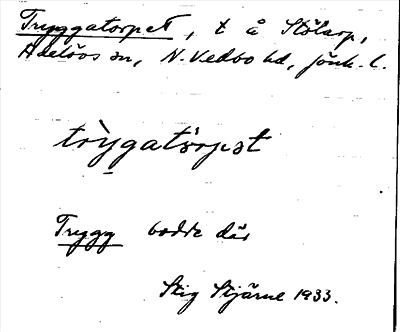 Tryggatorpet, t å Stölarp,
Adelövs sn, N. Vedbo hd, Jönk. l.
try̆gatòrpət
Trygg bodde där
Stig Stjärne 1933.